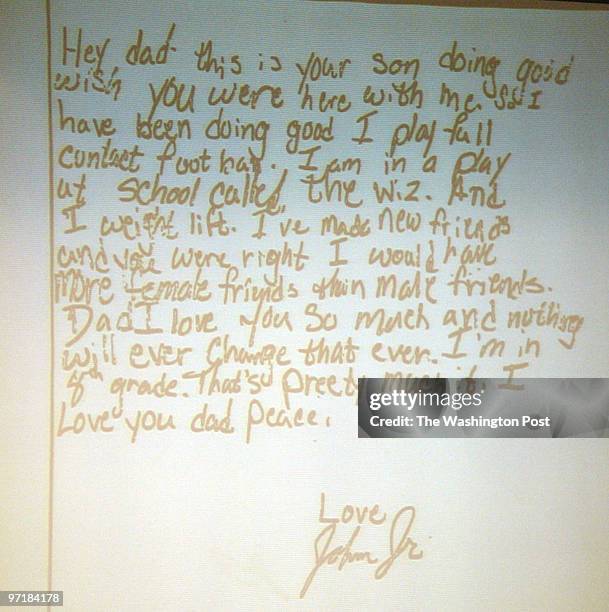 Hey dad this is your son doing good
wish you were here with me. So I
have been doing good I play full
contact foot ball. I am in a play
at school called, the wiz. And
I weight lift. I've made new friends
and you were right I would have
more female friends than male friends.
Dad I love you so much and nothing
will ever change that ever. I'm in
8th grade. That's preety much it. I
Love you dad peace.
Love
John Jr.
gettyimages
The Washington Post
97184178
Credit: The Washington Post